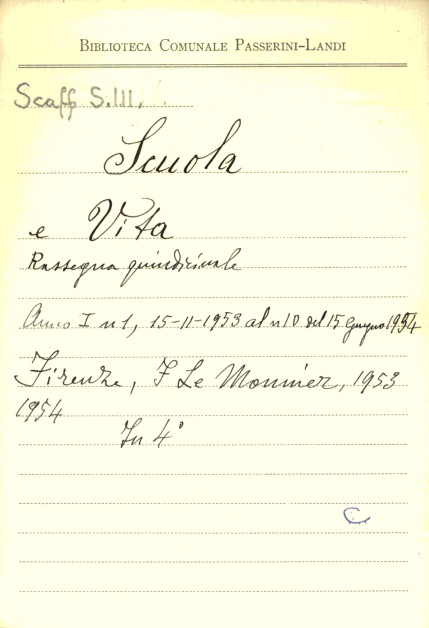 BIBLIOTECA COMUNALE PASSERINI-LANDI
Scaff S.III.
Scuola
e Vita
Rassegna quindicinale
Anno I n 1, 15-11-1953 al n 10 del 15 Giugno 1954
Firenze, F Le Monnier, 1953
1954
In 4°
C